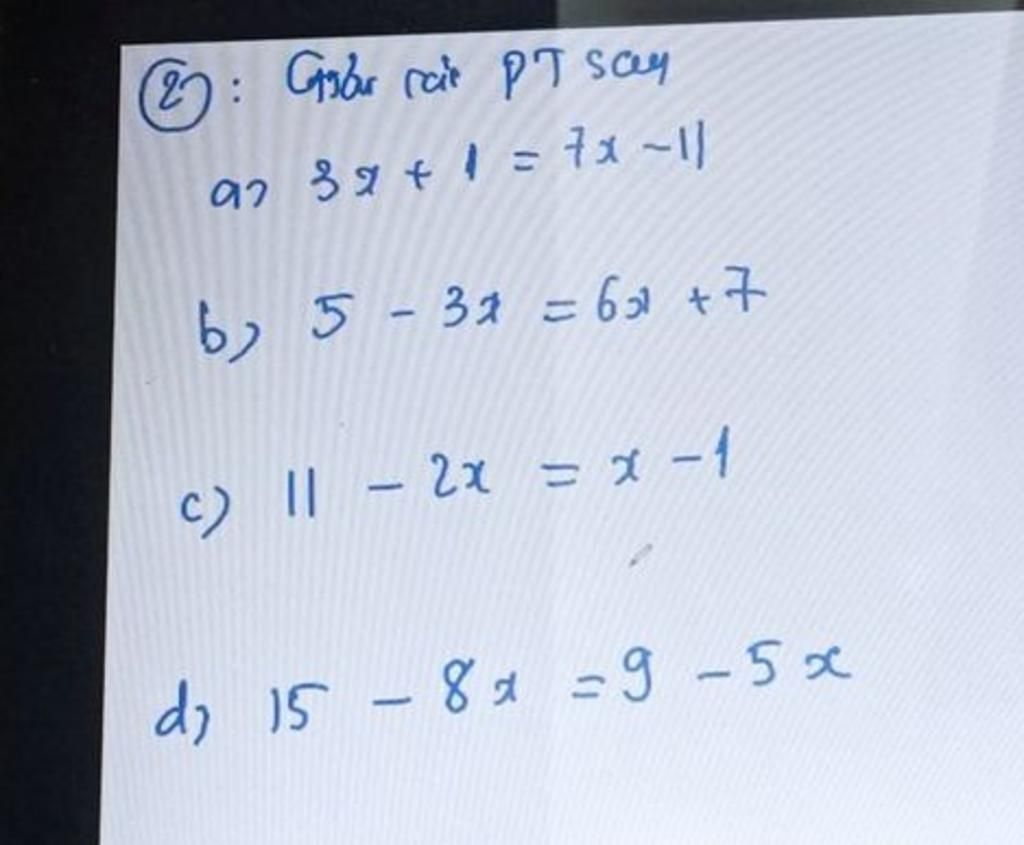 ②: Giải các PT sau
a) 3x + 1 = 7x - 11
b) 5 - 3x = 6x + 7
c) 11 - 2x = x - 1
d) 15 - 8x = 9 - 5x